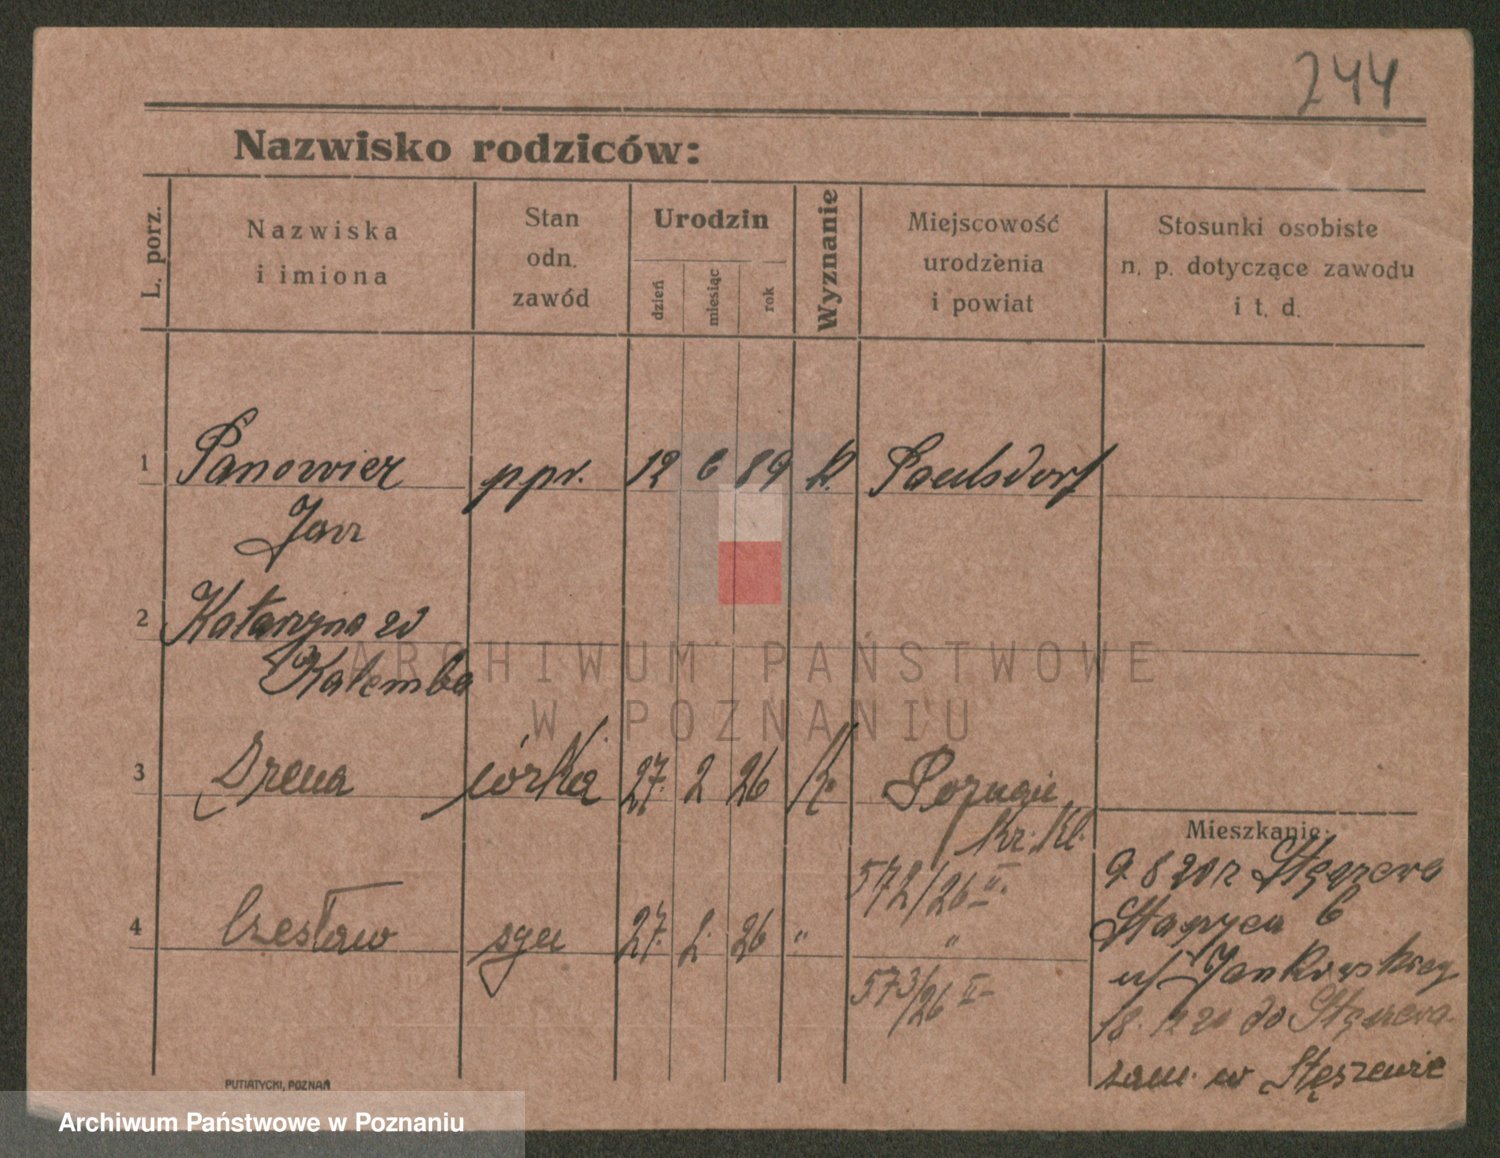 244
Nazwisko rodziców:
L. porz.
Nazwiska
i imiona
Stan
odn.
zawód
Urodzin
dzień
miesiąc
rok
Wyznanie
Miejscowość
urodzenia
i powiat
Stosunki osobiste
n. p. dotyczące zawodu
i t. d.
1 Panowicz ppr. 12 6 89 k. Paulsdorf
Jan
2 Katarzyna zd
Kalemba
3 Irena córka 27. 2 26 k.
Kr. Kl.
572/26 II.
4 Czesław syn 27. 2. 26 " "
573/26 II
Mieszkanie:
9 8 20 z Stęszewa
6
u/ Jankowskiej
18. 20 do Stęszewa.
zam. w Stęszewie
PUTIATYCKI, POZNAŃ
ARCHIWUM PAŃSTWOWE
W POZNANIU
Archiwum Państwowe w Poznaniu